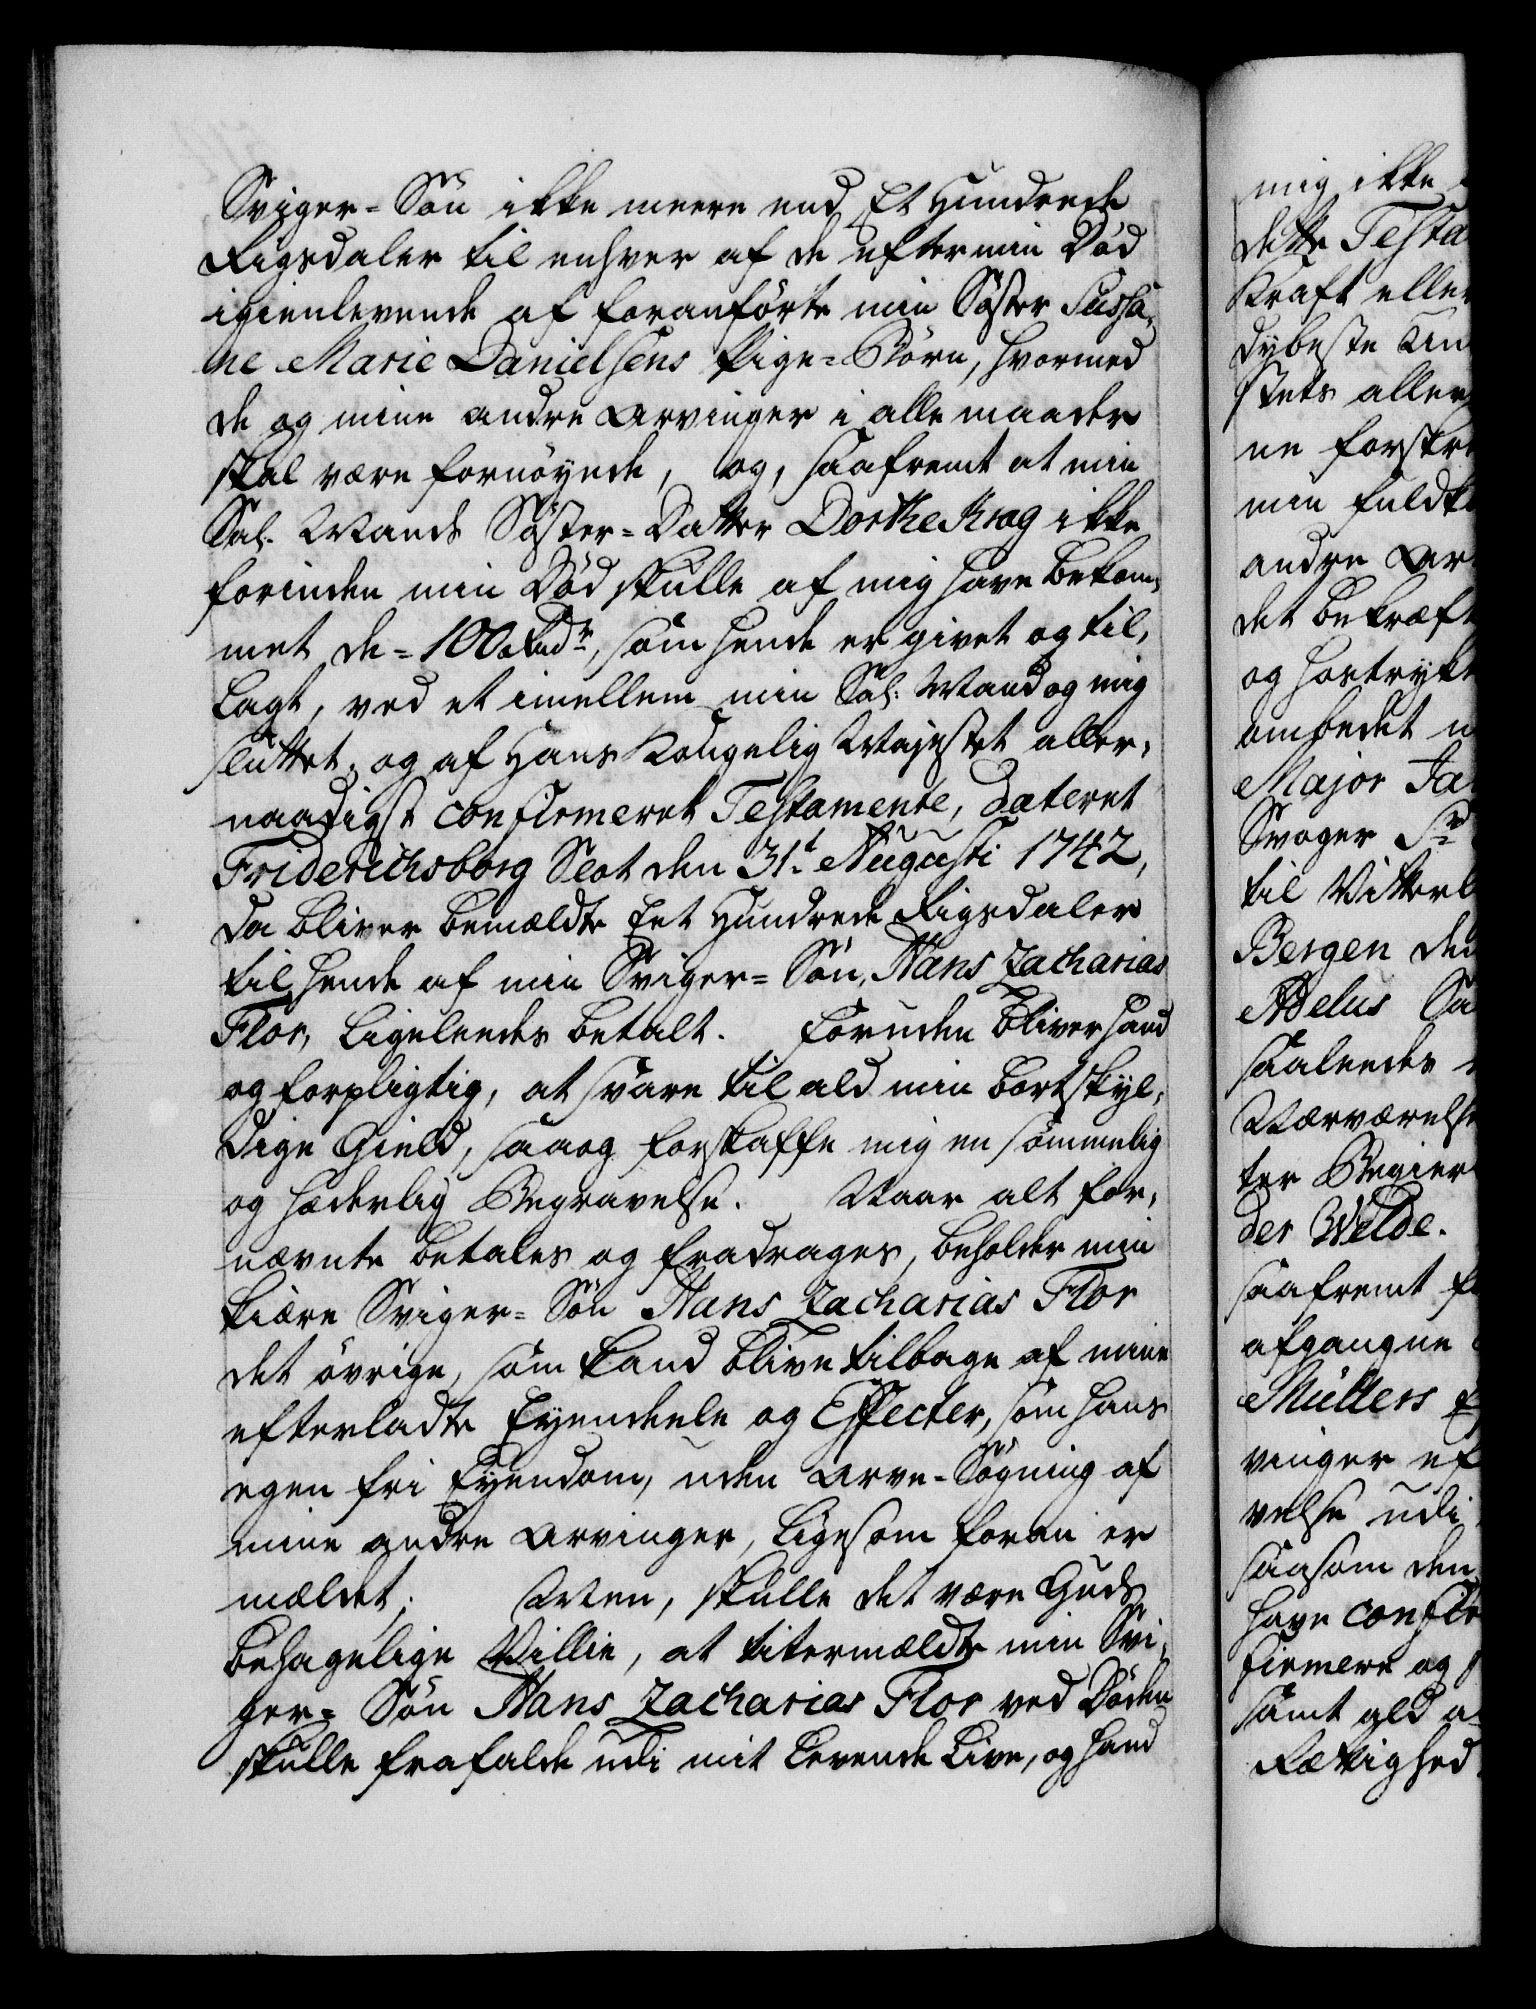 Sviger-Søn ikke meere end Et Hundrede
Rigsdaler til enhver af de efter min Død
igienlevende af foranførte min Søster Sussa-
ne Marie Danielsens Pige-Børn, hvormed
de og mine andre Arvinger i alle maader
skal være fornøyede, og, saafremt at min
Sal. Mands Søster-Datter Dorthe Krag ikke
forinden min Død skulle af mig have bekom-
met de = 100 Rdr, som hende er givet og til-
lagt, ved et imellem min Sal: Mand og mig
sluttet, og af Hans Kongelig Majestet aller-
naadigst confirmeret Testamente, dateret
Friderichsborg Slot den 31t Augusti 1742,
da bliver bemældte Eet Hundrede Rigsdaler
til hende af min Sviger-Søn, Hans Zacharias
Flor, ligeleedes betalt. Foruden bliver hand
og forpligtig, at svare til ald min bortskyl-
dige Gield, saa og forskaffe mig en sømmelig
og hæderlig Begravelse. Naar alt for-
nævnte betales og fradrages, beholder min
kiære Sviger-Søn Hans Zacharias Flor
det øvrige, som kand blive tilbage af mine
efterladte Eyendeele og Effecter, som hans
egen fri Eyendom, uden Arve-Søgning af
mine andre Arvinger, ligesom foran er
mældet. Men, skulle det være Guds
behagelige Villie, at titermældte min Svi-
ger-Søn Hans Zacharias Flor ved Døden
skulle frafalde udi mit levende Live, og hand
mig ikke
dette Testa
Kraft eller
dybeste Un
stets aller
ne forskre
min fuldk
andre Ar
det bekræft
og hostrykt
ombedet
Major Ja
Svoger Sr
til Vitterl
Bergen den
Adelus Sa
saaleedes
Nærværelse
ter Begier
der Welde.
saafremt
afgangne
Müllers
vinger ef
velse udi
saasom den
have confir
firmere og
samt ald a
Rættighed